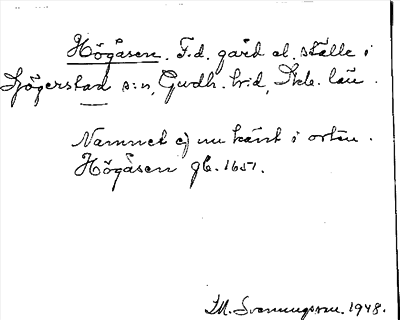 Högåsen. F.d. gård el. ställe i
Sjögerstad s:n, Gudh. h:d, Skb. län.
Namnet ej nu känt i orten.
Högåsen gb. 1651.
M. Svenningsson. 1948.